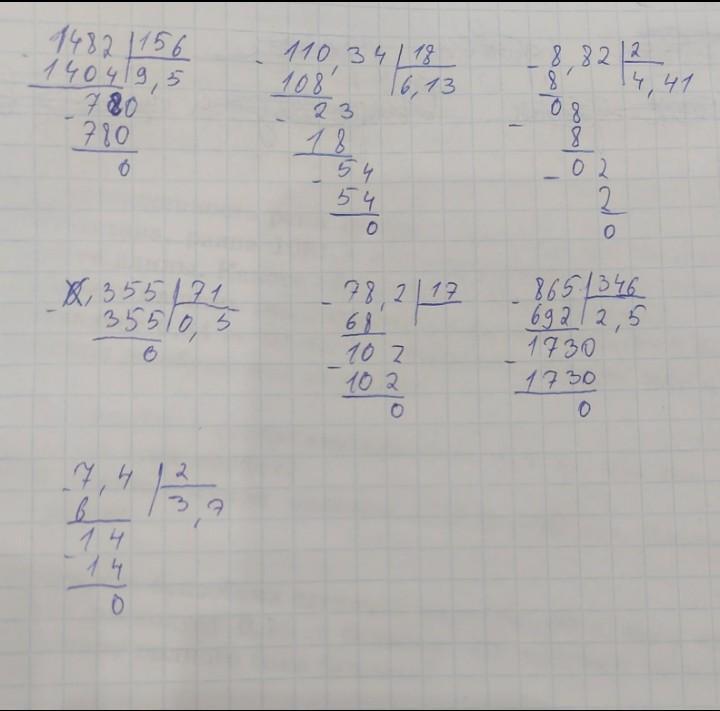 1482 156
1404 9,5
- 780
780
0
- 110,34 18
108 6,13
- 23
18
- 54
54
0
- 8,82 2
8 4,41
- 08
8
- 02
2
0
- ,355 71
355 0,5
0
- 78,2 17
68
- 102
102
0
- 865 346
692 2,5
- 1730
1730
0
- 7,4 2
6 3,7
- 14
14
0